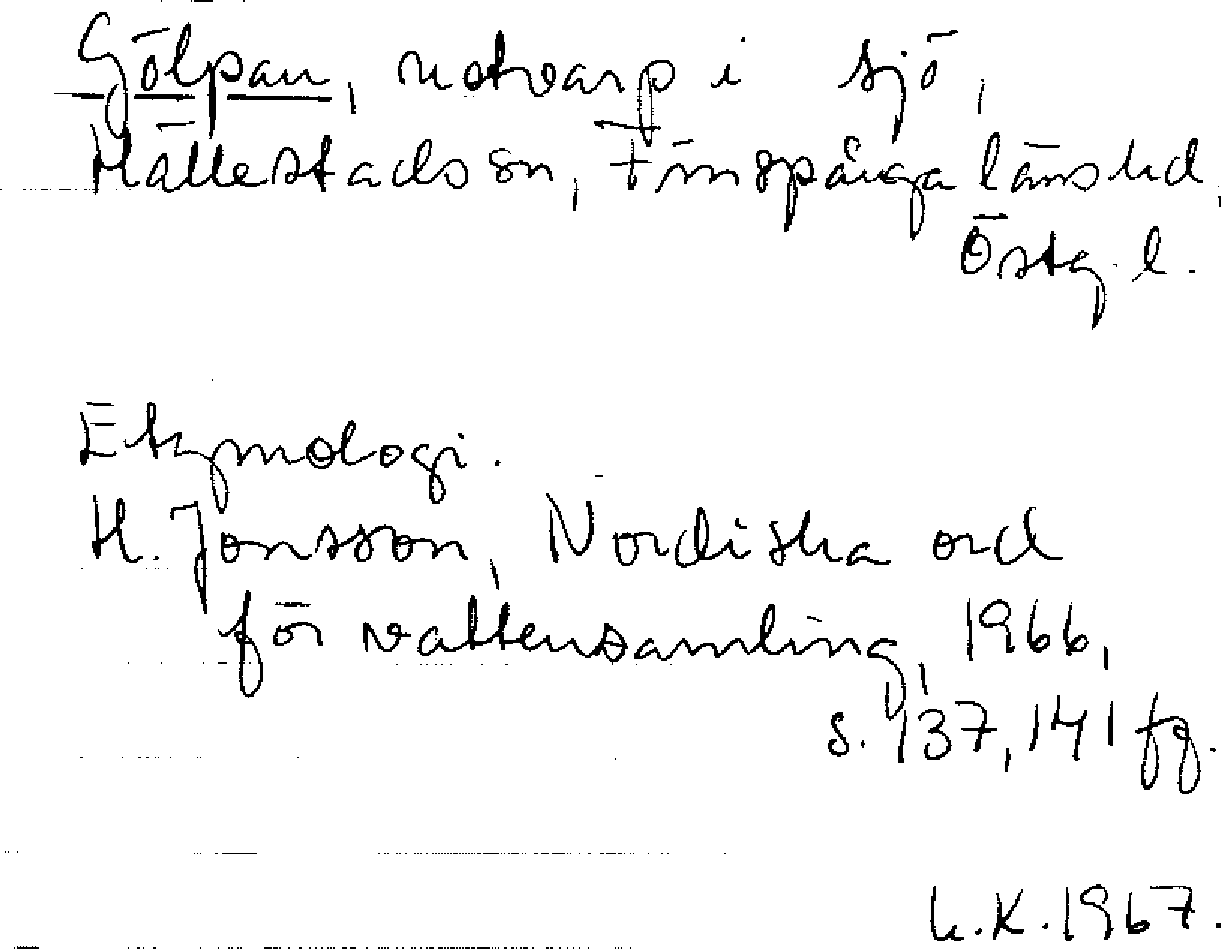 Gölpan, notvarp i sjö,
Hällestads sn, Finspånga länshd,
Östg. l.
Etymologi.
H. Jonsson, Nordiska ord
för vattensamling, 1966,
s. 137, 141 fg.
L.K. 1967.